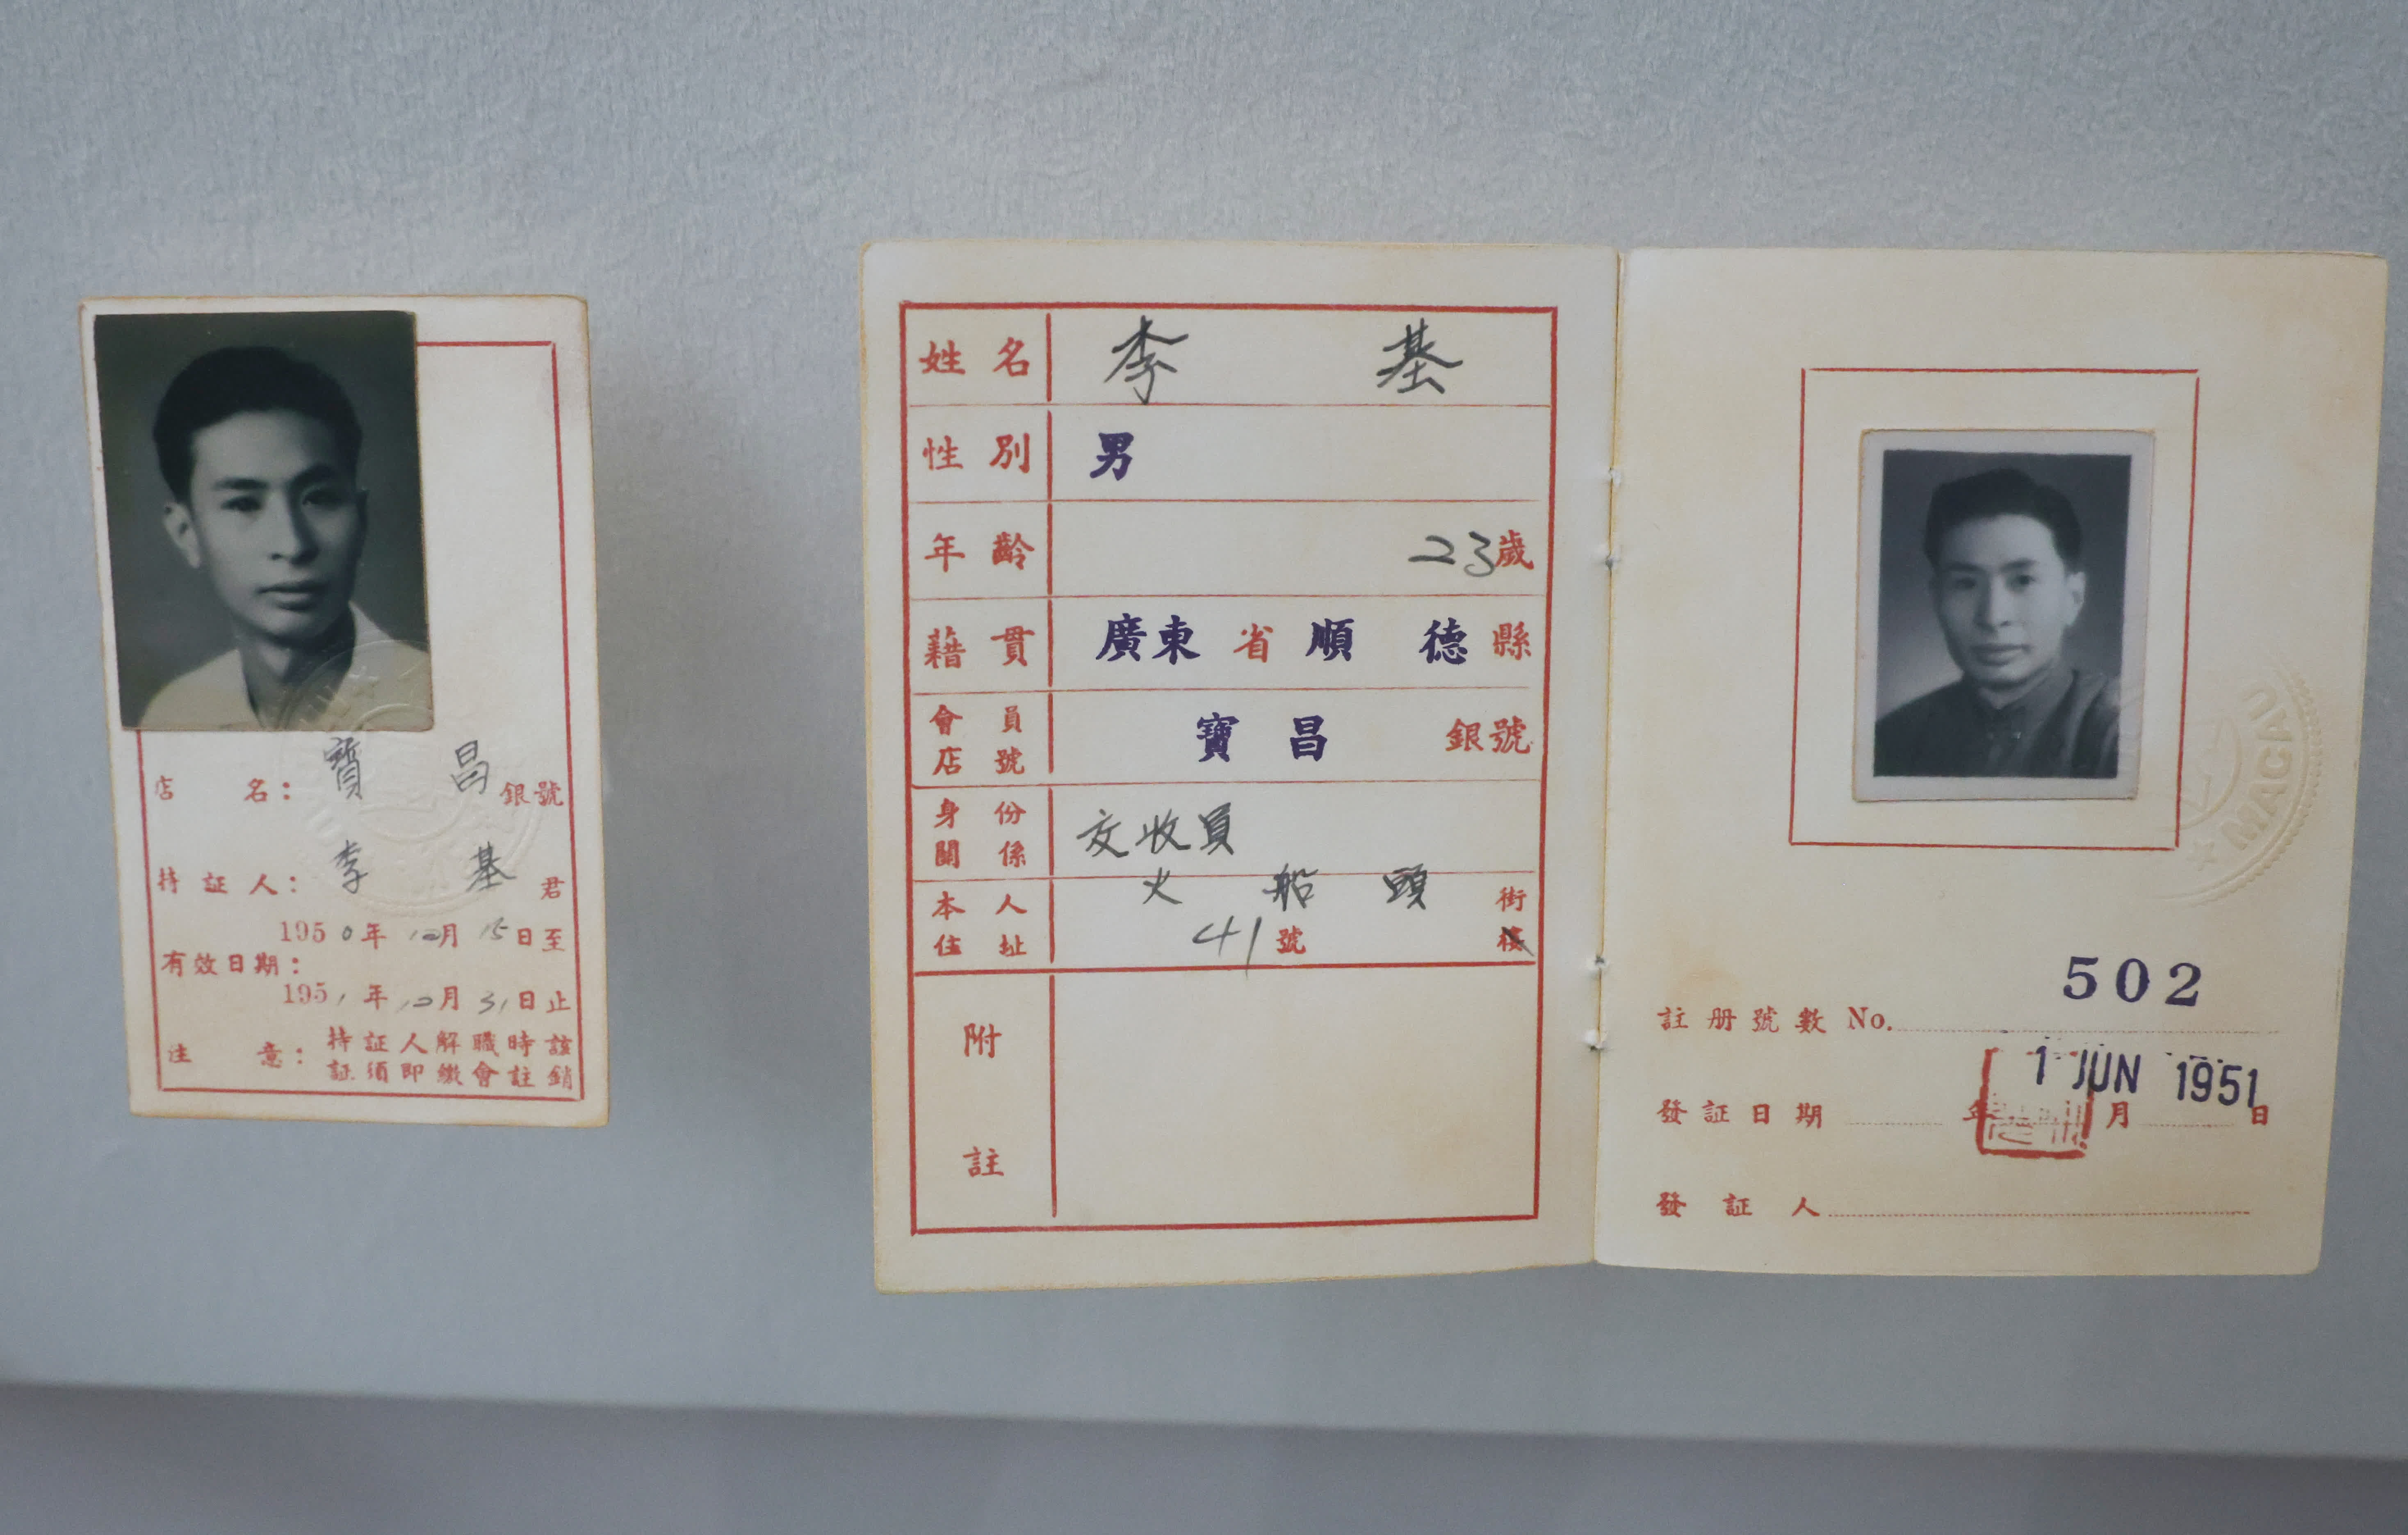 店名：寶昌銀號
持証人：李基君
1950年12月15日至
有效日期：
1951年12月31日止
注意：持証人解職時該
証須即繳會註銷
姓名 李基
性別 男
年齡 23歲
藉貫 廣東省順德縣
會員店號 寶昌銀號
身份關係 交收員
本人住址 火船頭街
41號樓
附註
MACAU
註册號數 No. 502
1 JUN 1951
發証日期 年 月 日
發証人